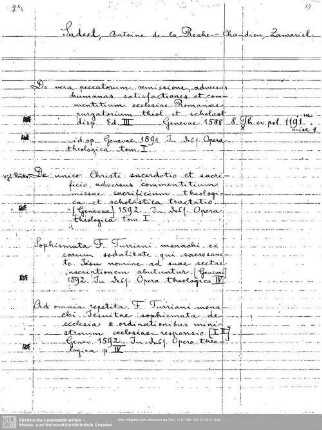 Sadeel, Antoine de la Roche-Chandieu, Zamariel.
De vera peccatorum remissione, adversus
humanas satisfactiones et com-
mentitium ecclesiae Romanae
purgatorium theol. et scholast.
disp. Ed. III Genevae 1588 8. Th. ev. pol. 1191. m
id. op. Genevae In Opera
theologica tom. I
De unico Christi sacerdotio et sacri-
ficio, adversus commentitium
missae sacrificium theologi-
ca et scholastica tractatio.
[Genevae] 1592. In Opera
theologica tom I
Sophismata F. Turriani monachi ex
eorum sodalitate qui sacrosanc-
to Jesu nomine ad suae sectae
inscriptionem abutuntur. [Genevae]
1592. In Opera theologica IV
Ad omnia repetita F. Turriani mona-
chi Jesuitae sophismata de
ecclesia & ordinationibus mini-
strorum ecclesiae responsio. [I II]
Genev. 1592. In Opera theo-
logica p. IV